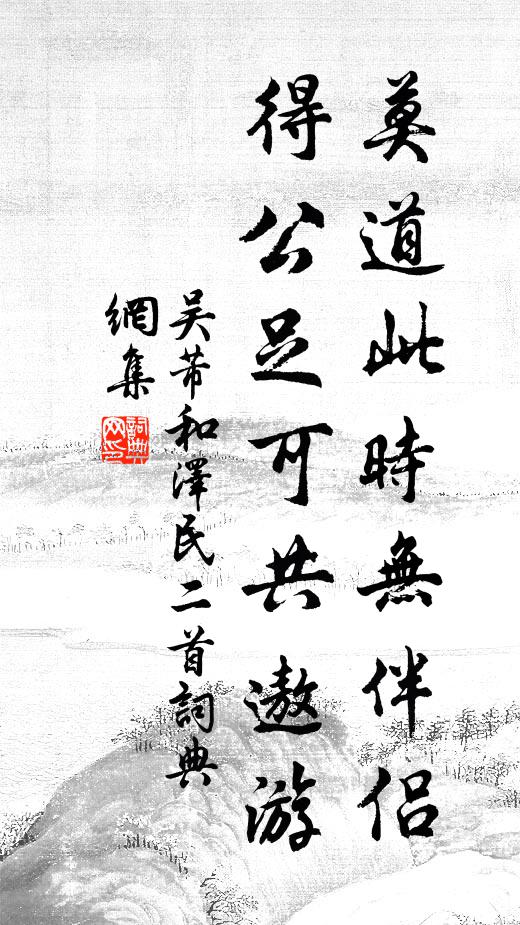 莫道此時無伴侣
得公足可共遨游
吴芾和澤民二首詞典
網集